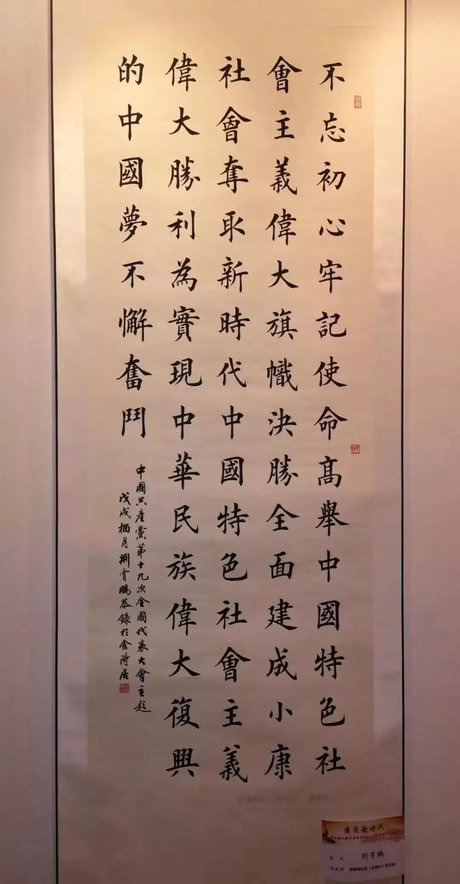 不忘初心牢記使命高舉中國特色社
會主義偉大旗幟決勝全面建成小康
社會奪取新時代中國特色社會主義
偉大勝利為實現中華民族偉大復興
的中國夢不懈奮鬥
中國共產黨第十九次全國代表大會主題
戊戌桶月劉雪鵬恭錄於含海居
書寫新時代
劉雪鵬